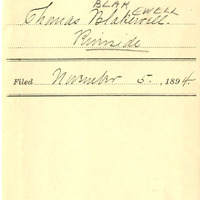 BLAKEWELL
Thomas Blakewell.
Riverside
Filed November 5, 1894.